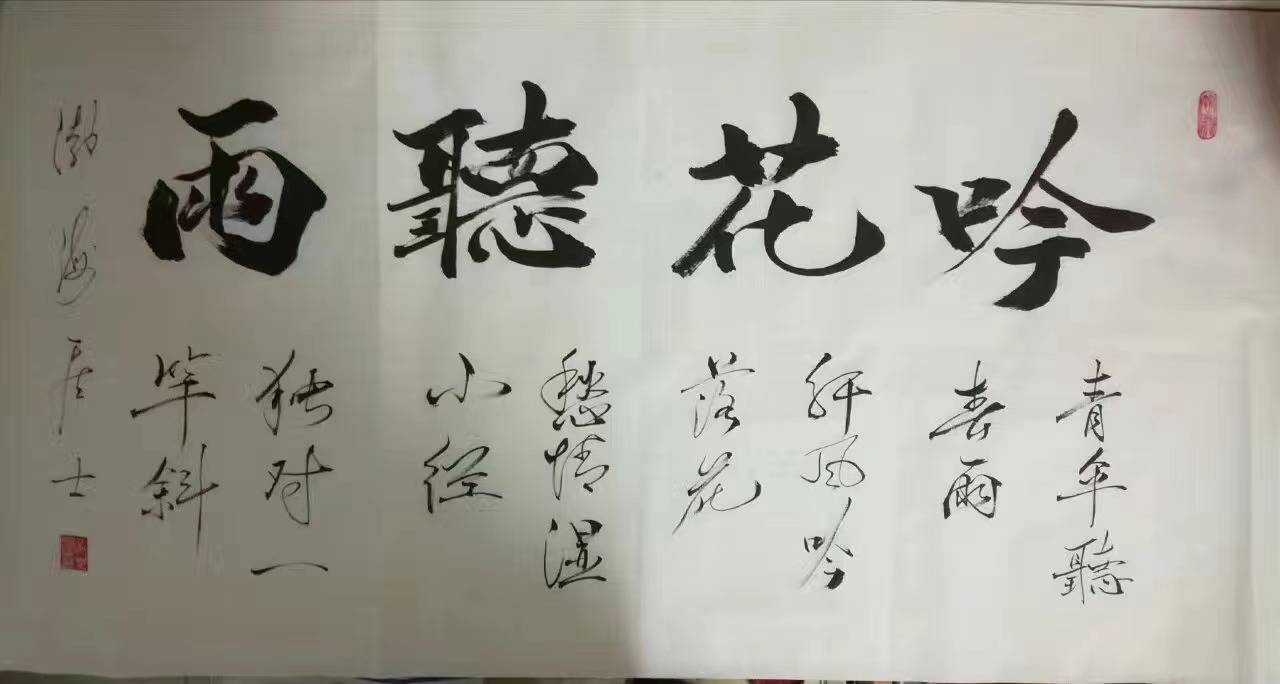 吟花聽雨
青伞聽
春雨
纤风吟
落花
愁情湿
小径
独对一
竿斜
渤海居士